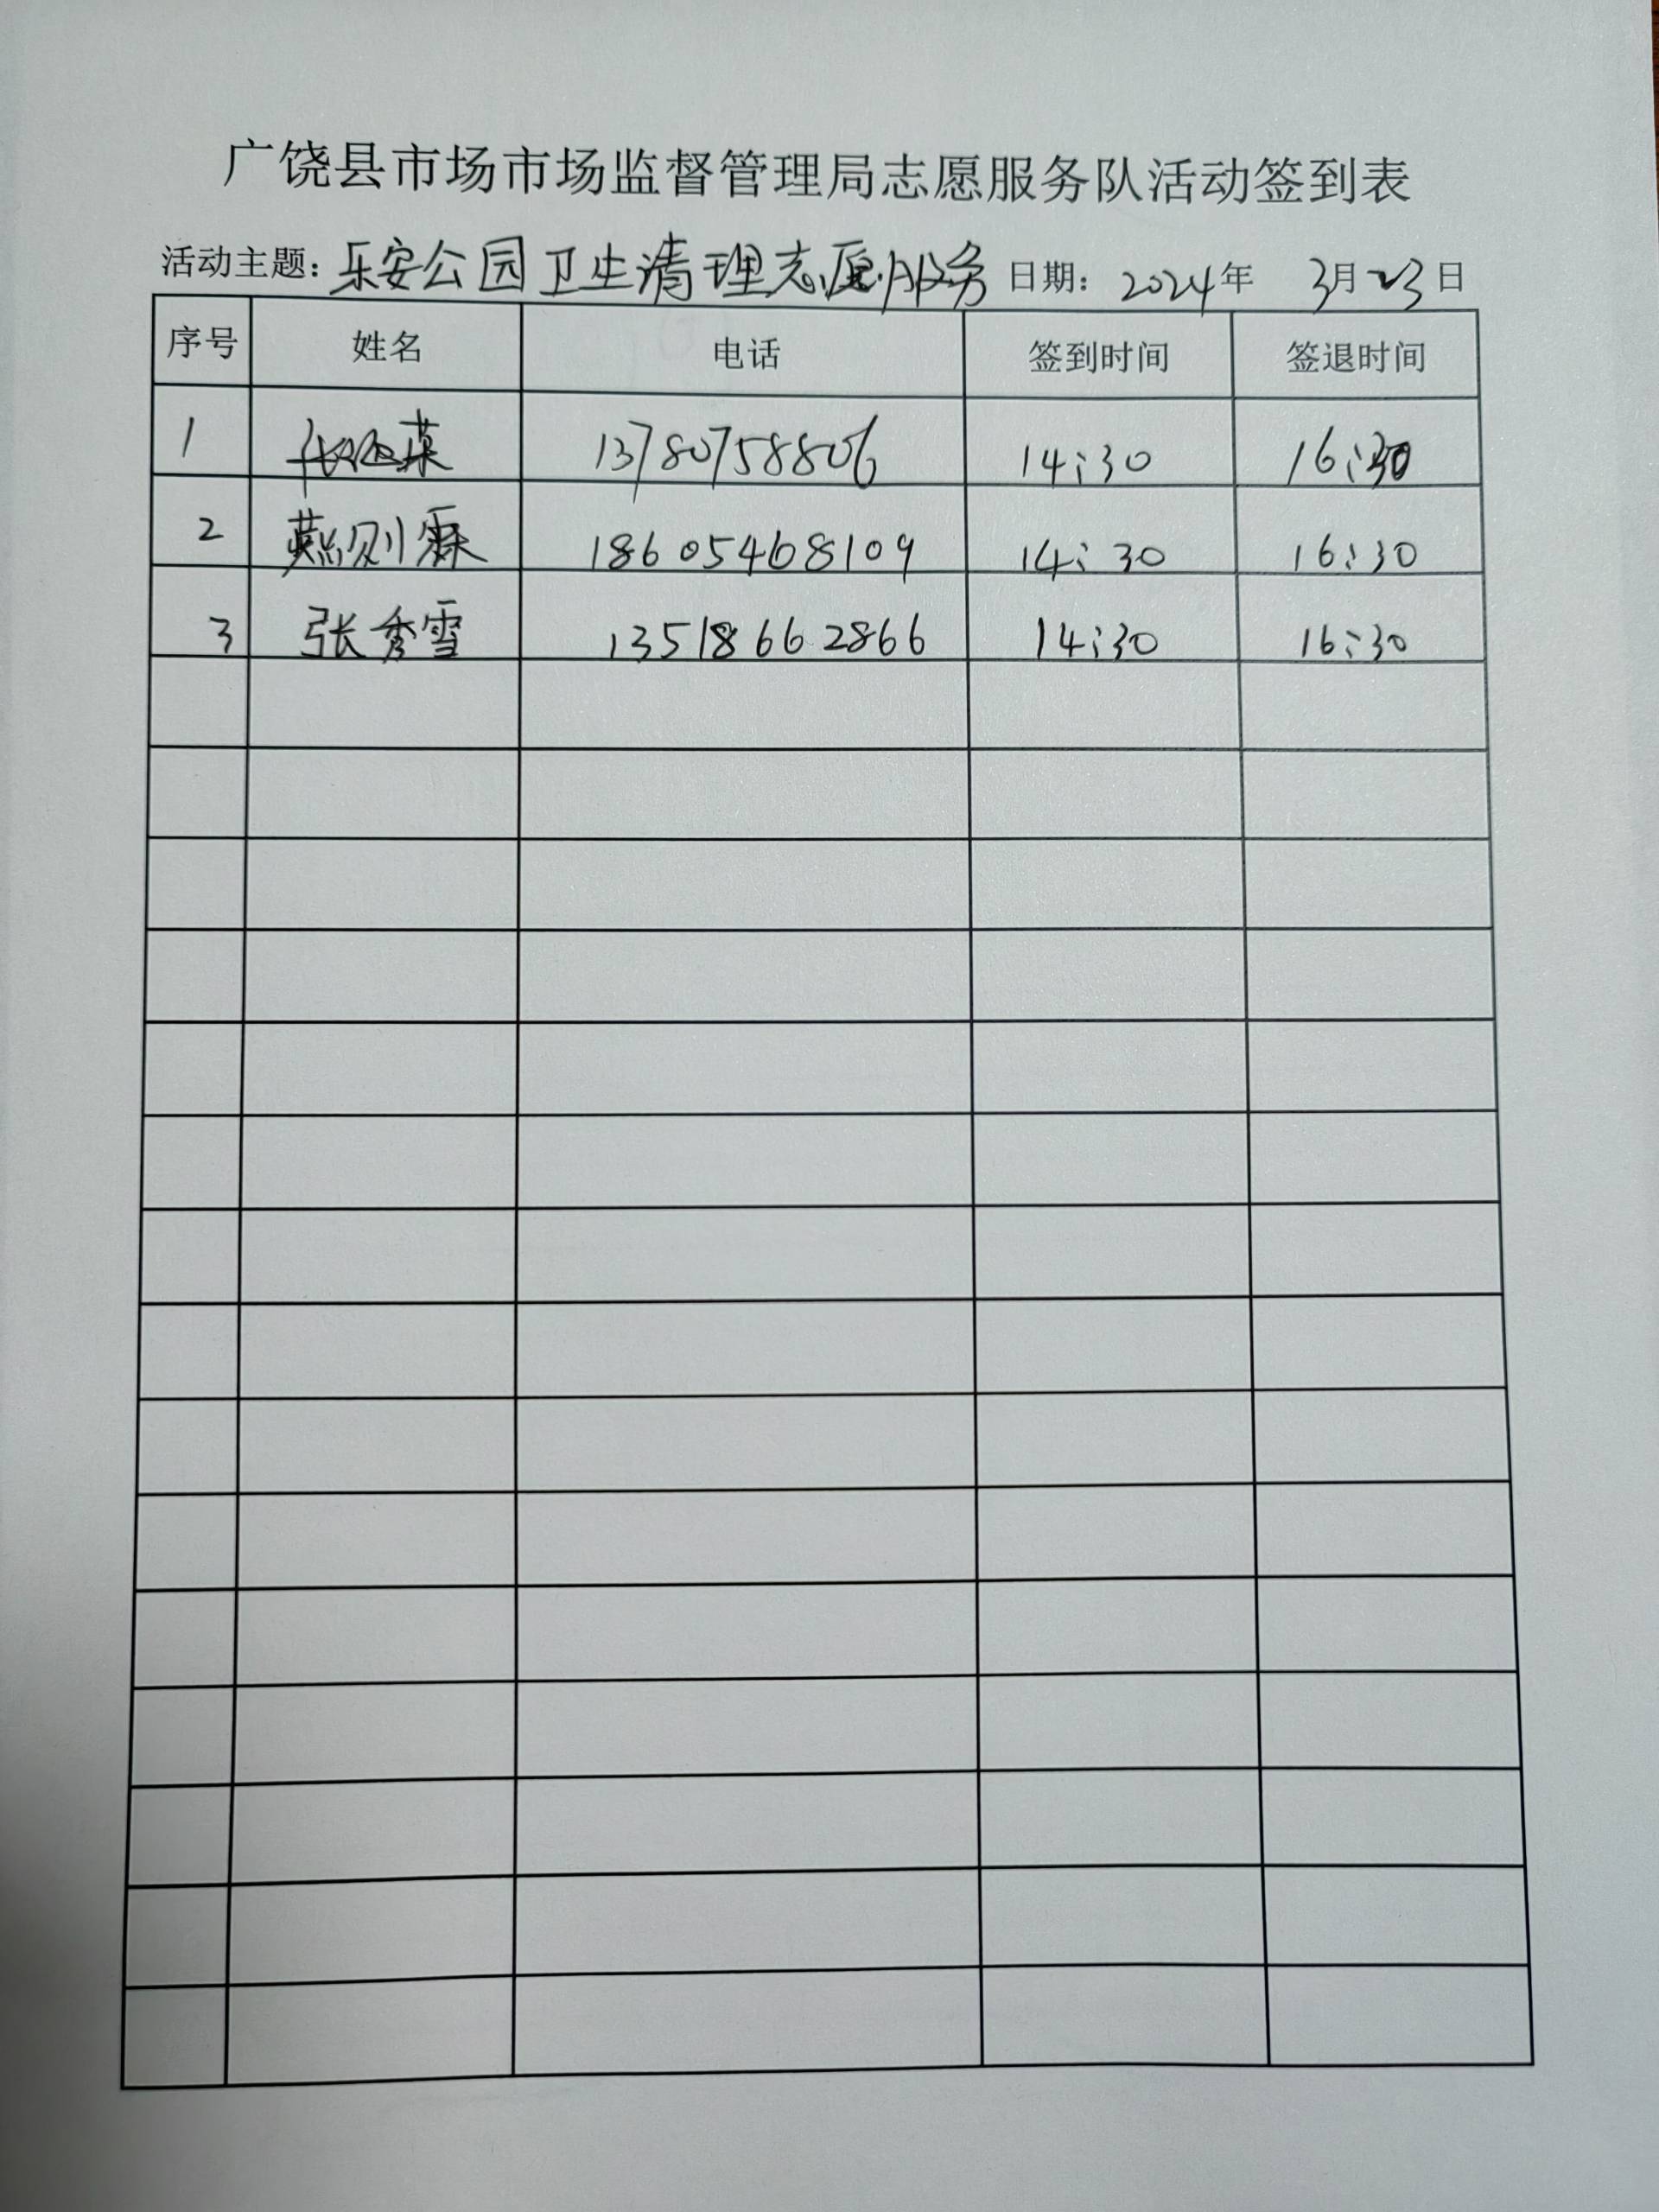 广饶县市场市场监督管理局志愿服务队活动签到表
活动主题：乐安公园卫生清理志愿服务 日期：2024年 3月23日
序号 姓名 电话 签到时间 签退时间
1 13780758806 14:30 16:30
2 燕则霖 18605468109 14:30 16:30
3 张秀雪 13518662866 14:30 16:30